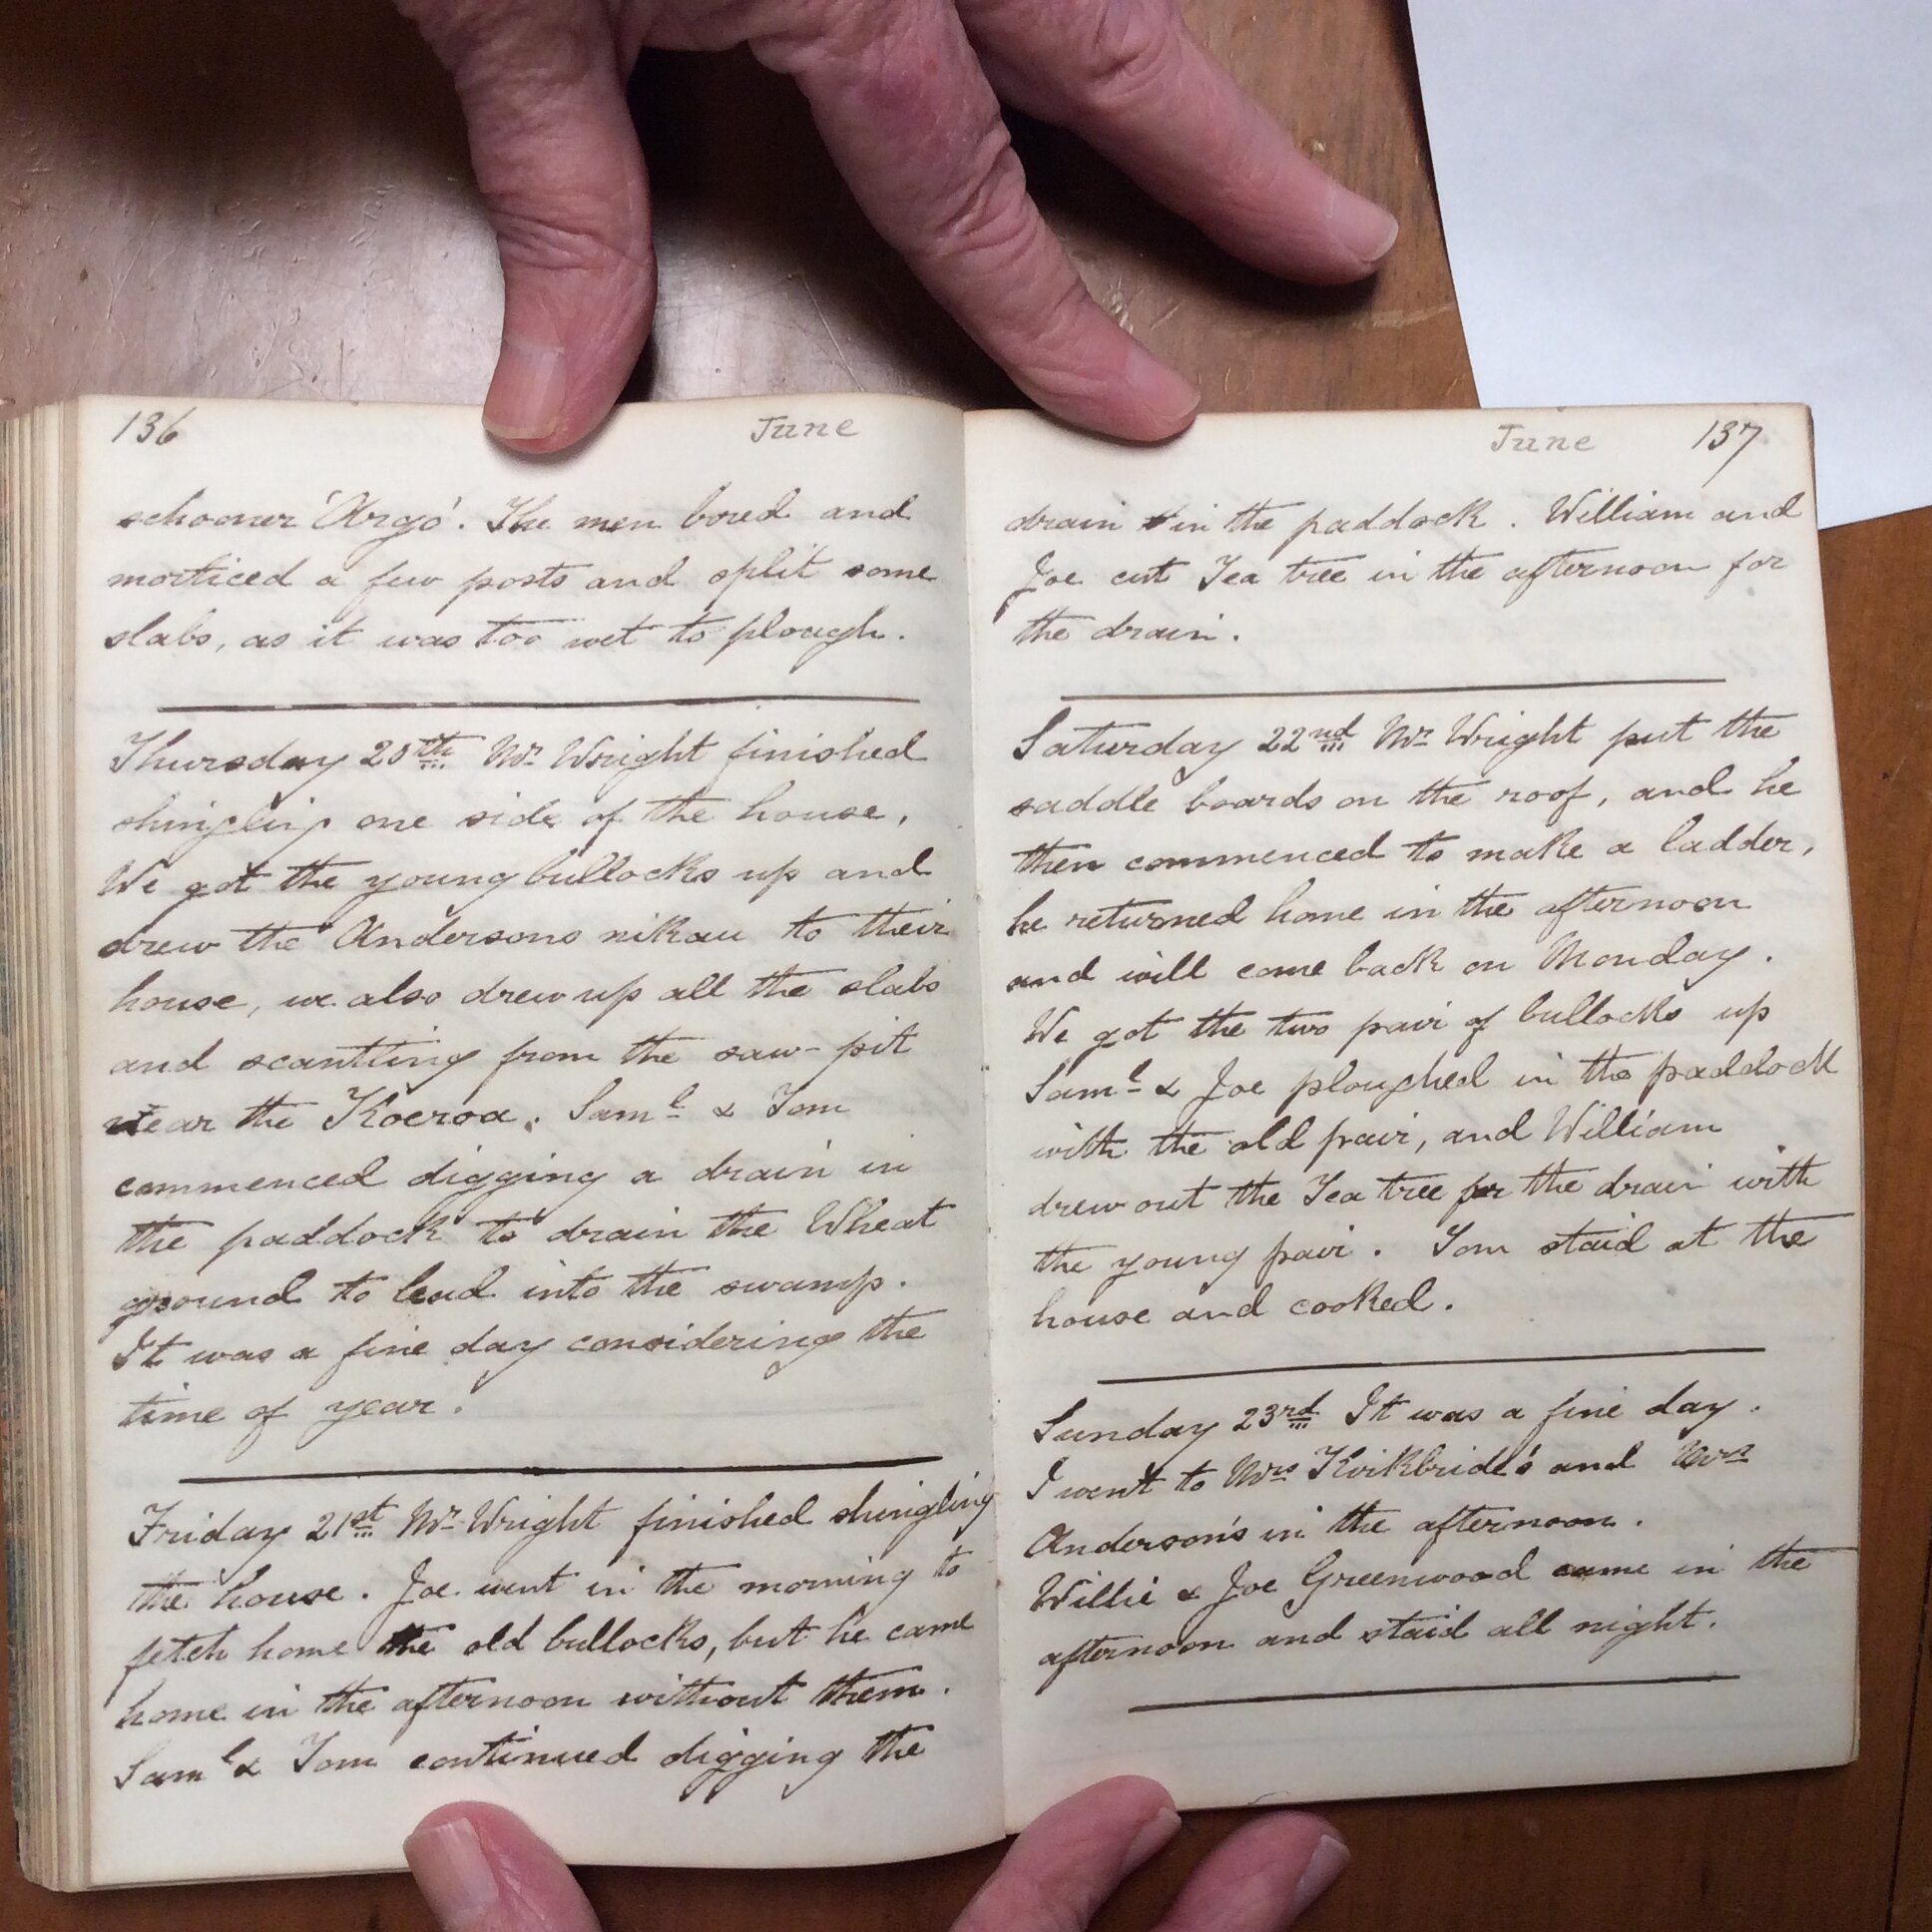 136 June
schooner 'Argo'. The men bored and
morticed a few posts and split some
slabs, as it was too wet to plough.
Thursday 20th Mr Wright finished
shingling one side of the house.
We got the young bullocks up and
drew the Andersons nikau to their
house, we also drew up all the slabs
and scantling from the saw-pit
near the Koeroa. Saml & Tom
commenced digging a drain in
the paddock to drain the Wheat
ground to lead into the swamp.
It was a fine day considering the
time of year.
Friday 21st Mr Wright finished shingling
the house. Joe went in the morning to
fetch home the old bullocks, but he came
home in the afternoon without them.
Saml & Tom continued digging the
June 137
drain in the paddock. William and
Joe cut Tea tree in the afternoon for
the drain.
Saturday 22nd Mr Wright put the
saddle boards on the roof, and he
then commenced to make a ladder,
he returned home in the afternoon
and will come back on Monday.
We got the two pair of bullocks up
Saml & Joe ploughed in the paddock
with the old pair, and William
drew out the Tea tree for the drain with
the young pair. Tom staid at the
house and cooked.
Sunday 23rd It was a fine day.
I went to Mrs Kirkbride's and Mrs
Anderson's in the afternoon.
Willie & Joe Greenwood came in the
afternoon and staid all night.